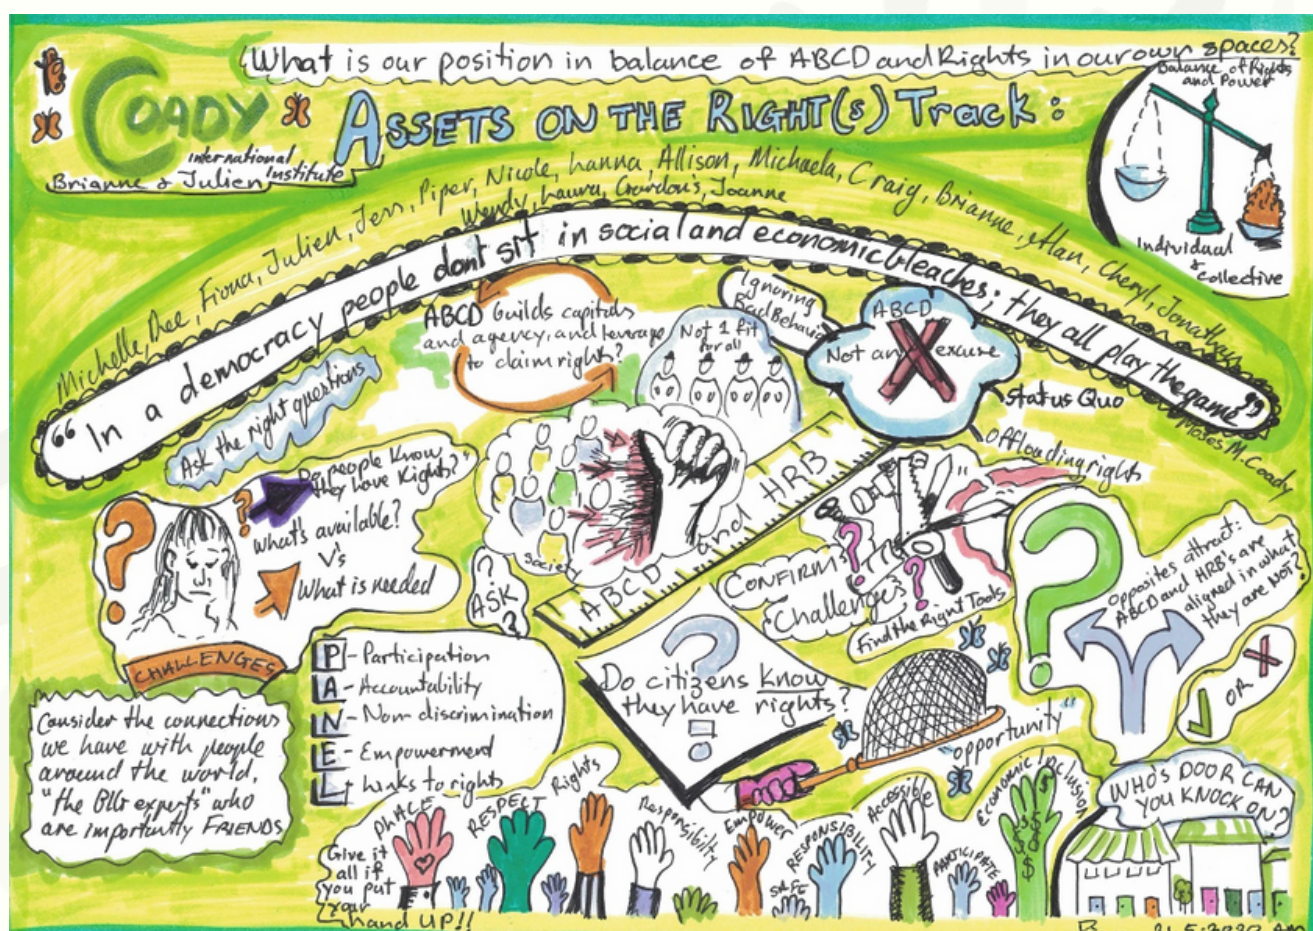 What is our position in balance of ABCD and Rights in our own spaces?
COADY
International
Institute
Brianne & Julien
ASSETS ON THE RIGHT(S) Track:
Balance of Rights
and Power
Individual
&
Collective
Michelle, Dee, Fiona, Julien, Jess, Piper, Nicole, Lanna, Allison, Michaela, Craig, Brianne, Alan, Cheryl, Jonathan
Wendy, Laura, Joanne
"In a democracy people dont sit in social and economic bleaches; they all play the game"
Moses M. Coady
Ask the right questions
ABCD Guilds capitals
and agency, and leverage
to claim rights?
Not 1 fit
for all
Ignoring
Bad Behavio
ABCD
Not any excuse
X
Status Quo
offloading rights
Do people Know
they have Rights?"
What's available?
V's
What is needed
CHALLENGES
society
ABCD and HRB
?
ASK
?
Confirms
Challenges
Find the Right Tools
Opposites attract:
ABCD and HRB's are
aligned in what
they are NOT?
OR
Consider the connections
we have with people
around the world,
who
are importantly FRIENDS
P - Participation
A - Accountability
N - Non discrimination
E - Empowerment
L - Links to rights
?
Do citizens know
they have rights?
opportunity
WHO'S DOOR CAN
YOU KNOCK ON?
Give it
all if
you put
your
hand UP!!
PhACE
RESPECT
Rights
Responsibility
Empower
SAFE
RESPONSIBILITY
Accessible
PARTICIPATE
Economic Inclusion